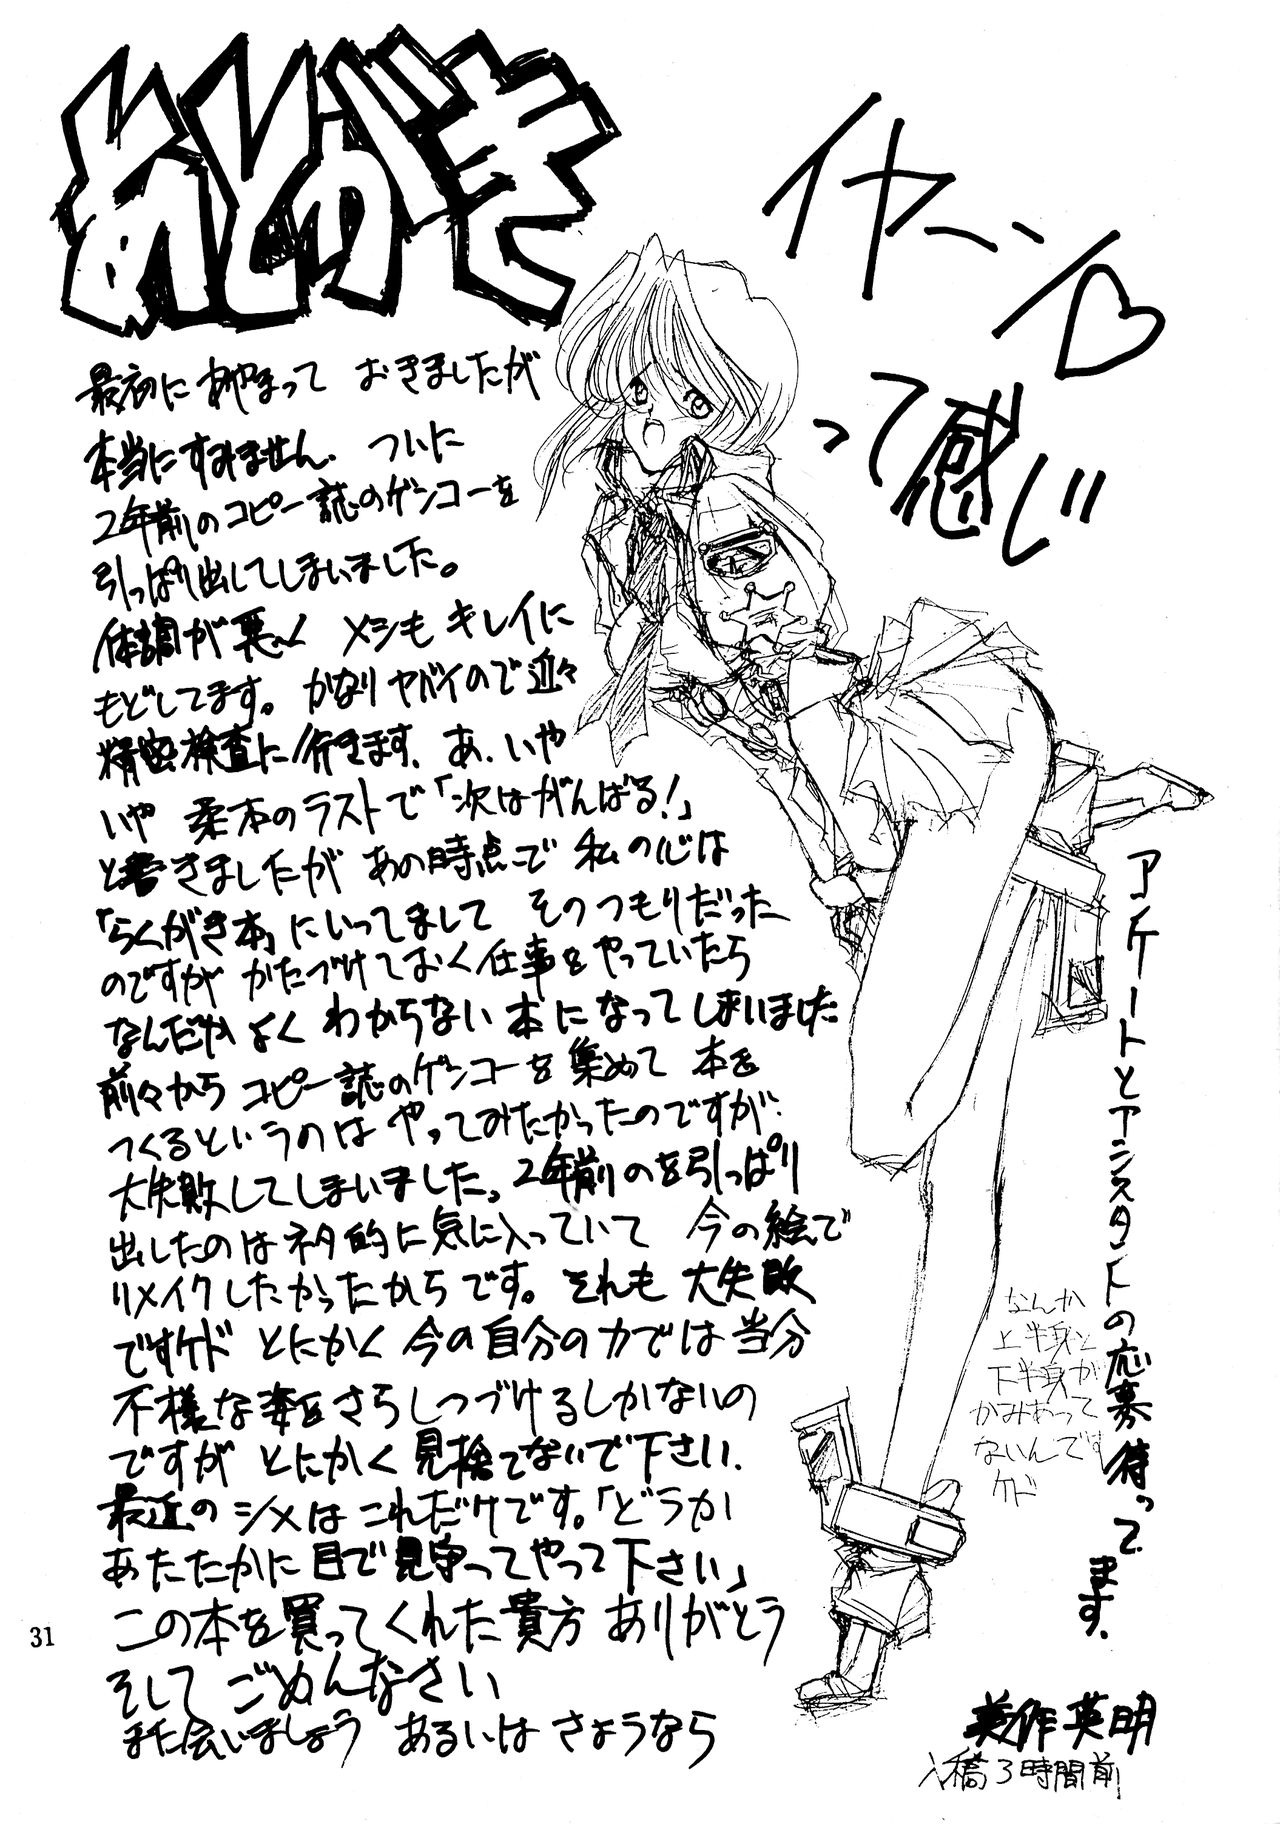 あとがき
イヤーン♡
って感じ
最初にあやまって おきましたが
本当にすみません. ついに
2年前のコピー誌のゲンコーを
引っぱり出してしまいました。
体調が悪く メシも キレイに
もどしてます。かなりヤバイので近々
精密検査に行きます. あ、いや
いや 柔本のラストで「次はがんばる!」
と書きましたが あの時点で 私の心は
「らくがき本」にいってまして そのつもりだった
のですが かたづけておく仕事をやっていたら
なんだかよく わからない本になってしまいました
前々から コピー誌のゲンコーを集めて 本を
つくるというのは やってみたかったのですが.
大失敗してしまいました。2年前のを引っぱり
出したのはネタ的に気に入っていて 今の絵で
リメイクしたかったからです。それも 大失敗
ですケド とにかく 今の自分の力では 当分
不様な姿をさらしつづけるしかないの
ですが とにかく 見捨てないで下さい.
最近の シメは これだけです。「どうか
あたたかに目で見守ってやって下さい」
この本を買ってくれた貴方 ありがとう
そして ごめんなさい
また会いましょう あるいは さようなら
アンケートとアシスタントの応募待ってます.
なんか
上半身と
下半身が
かみあって
ないんです
ケド
美作英明
入稿3時間前
31